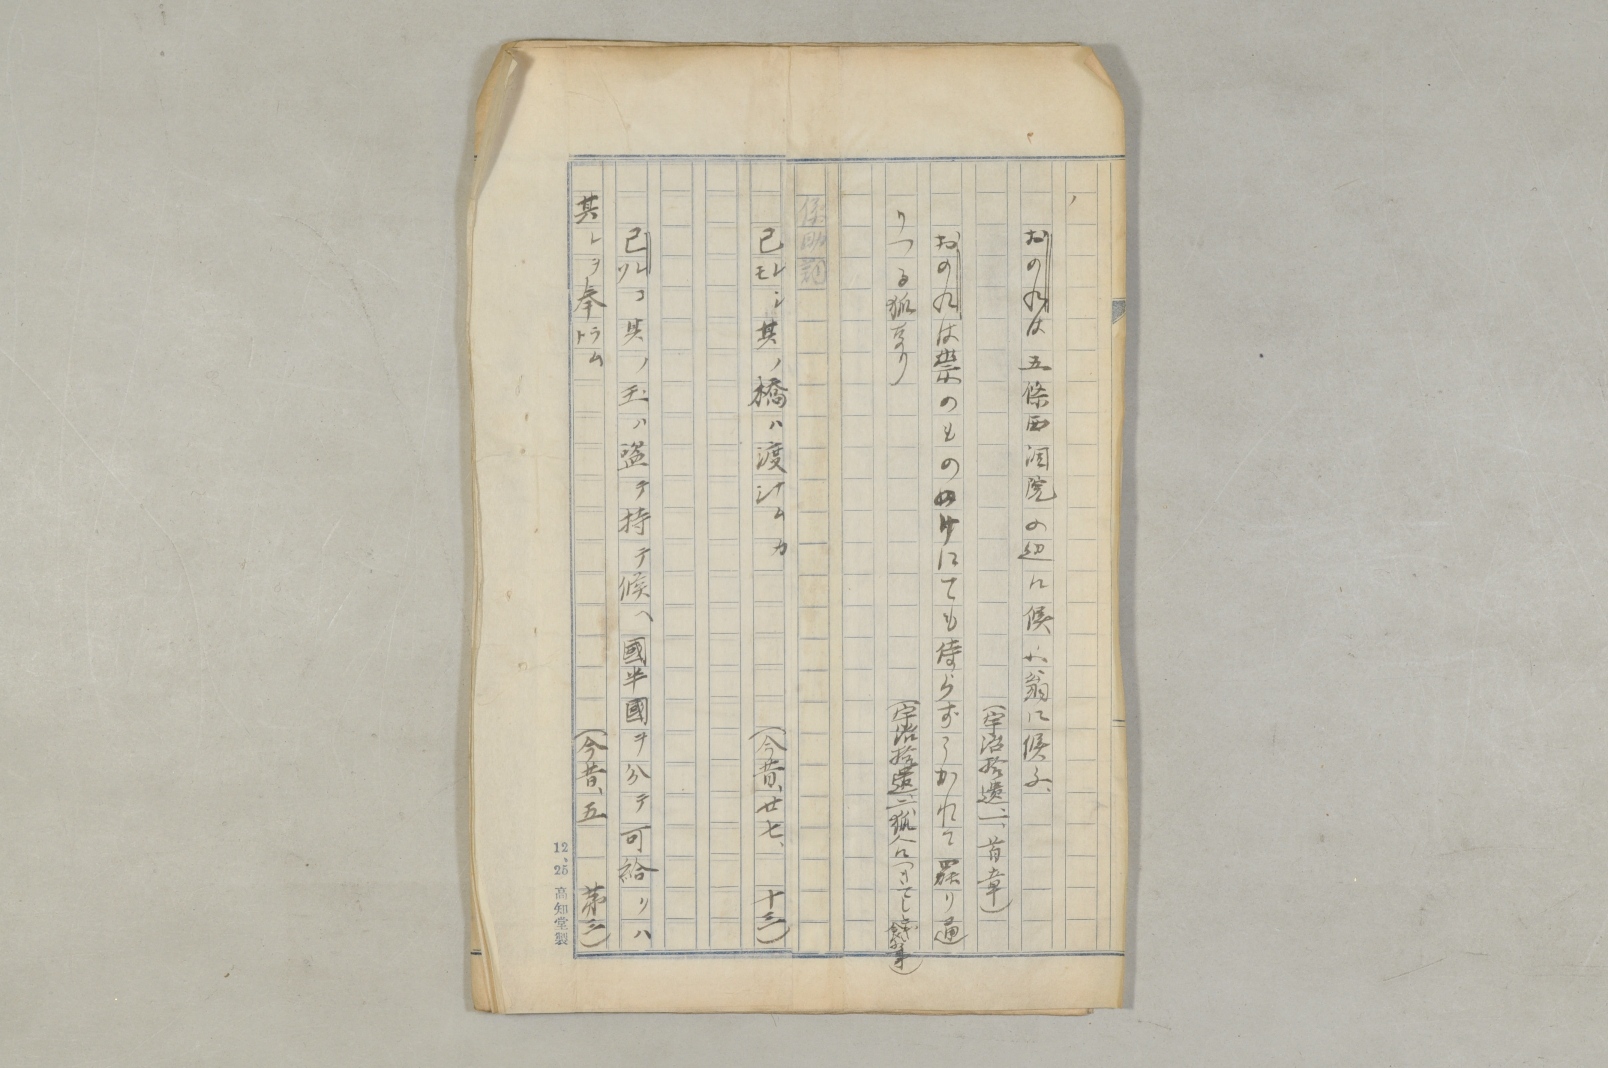 おのれは五條西洞院の辺に候ふ翁に候ふ、
(宇治拾遺、一、首章)
おのれは祟のものゝけにても侍らずうかれて罷り通
りつる狐なり
(宇治拾遺、狐人につきてしとぎ食事)
係助詞
己レモシ其ノ橋ハ渡ナムカ
(今昔、廿七、十三)
己レコソ其ノ玉ハ盗テ持テ候ヘ國半國ヲ分テ可給リハ
其レヲ奉ラム
(今昔、五 第三)
12、25 高知堂製